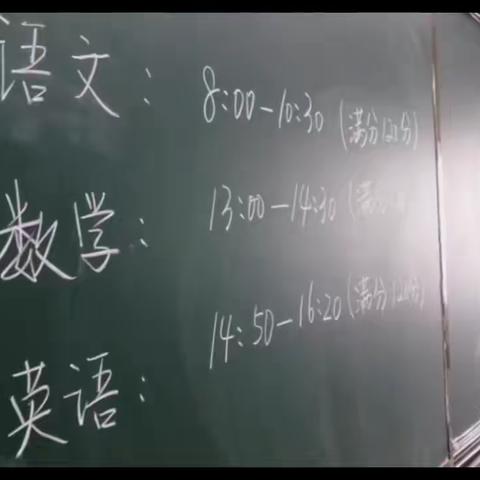 语文： 8:00-10:30 (满分120分)
数学： 13:00-14:30 (满分
英语： 14:50-16:20 (满分120分)